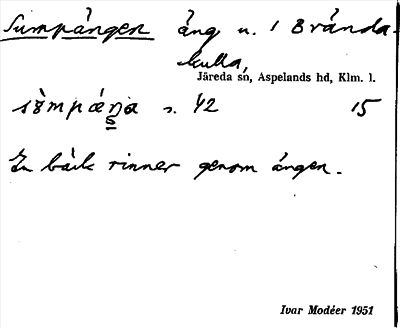 Sumpängen äng u. 1 Brända-
kulla,
Järeda sn, Aspelands hd, Klm. l.
s. 42 15
En bäck rinner genom ängen.
Ivar Modéer 1951